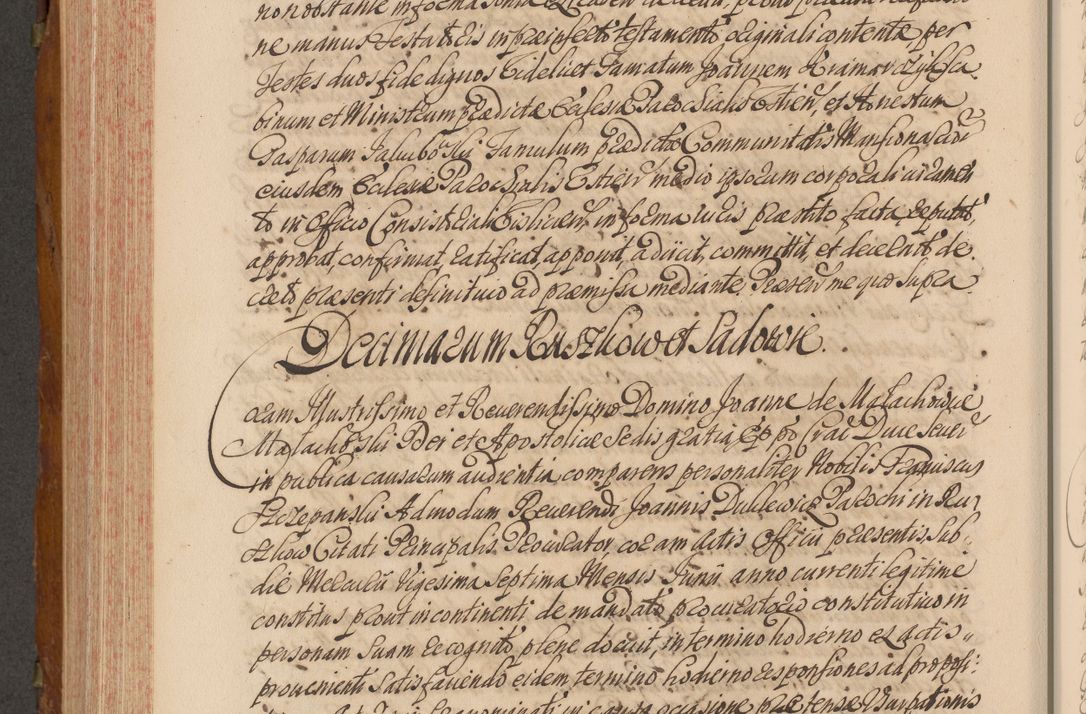 ne manus Testatoris in præinserto testamento originali contenta, per
Testes duos fide dignos videlicet Famatum Joannem Kramarczyk Sca-
binum et Ministrum prædictæ Ecclesiæ Parochialis et Honestum
Gasparum Jakubowski Famulum prædictæ Communitatis Mansionariorũ
eiusdem Ecclesiæ Parochialis medio ipsorum corporali iuramen
to in Officio Consistoriali in forma iuris præstito facta
approbat, confirmat, ratificat, apponit, adiicit, committit, et decernit, de
creto præsenti definitivo ad præmissa mediante. Præsen̄ me quo supra
Decimarum Ruszkow et Sadowie.
Coram Illustrissimo et Reverendissimo Domino Joanne de Małachowice
Małachowski Dei et Apostolicæ Sedis gratia Eppo Crac̄ Duce Sever̄
in publica causarum audientia comparens personaliter Nobilis Franciscus
Szczepanski Admodum Reverendi Joannis Duklewicz Parochi in Rus
zkow Citati Principalis Procurator, coram Actis Officii præsentis, sub
die Mercurii Vigesima Septima Mensis Junii anno currenti legitime
constitus prout in continenti de mandato procuratorio constitutivo in
personam suam recognito plene docuit, in termino hodierno ex actis
provenienti satisfaciendo eidem termino hodierno responsiones ad proposi: